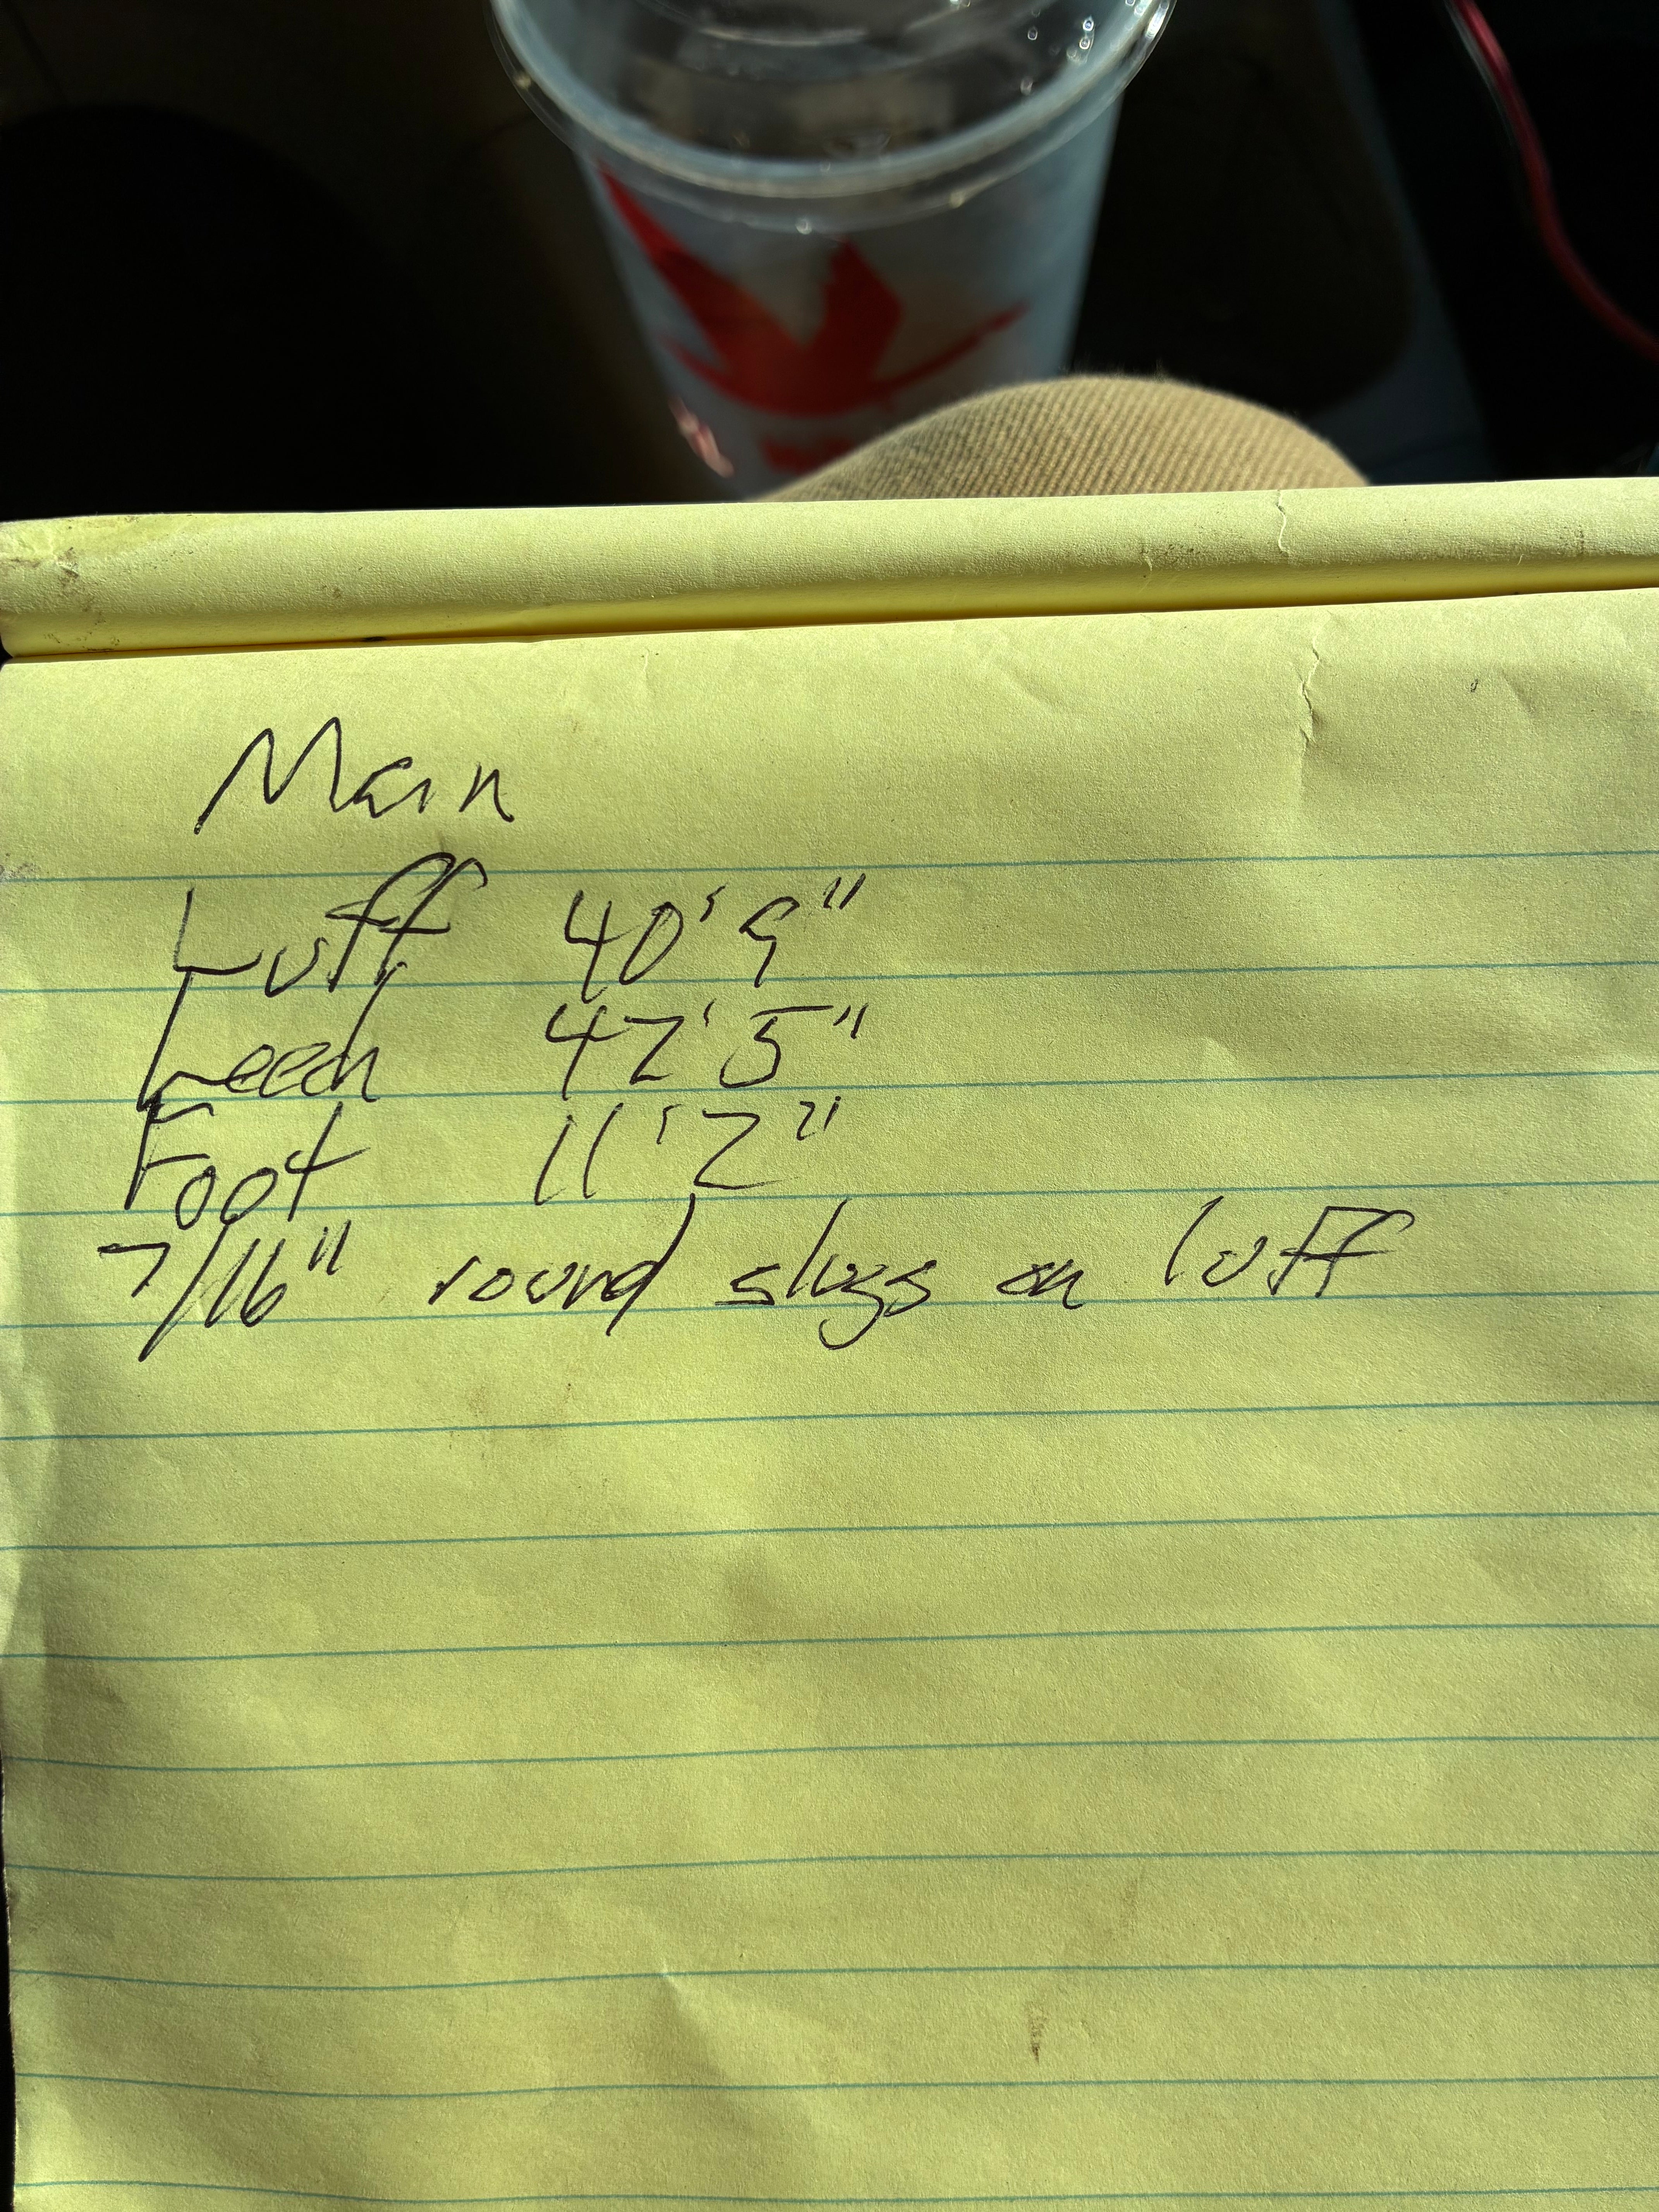 Main
Luff 40' 9"
Leech 42' 5"
Foot 11' 2"
7/16" round slugs on luff